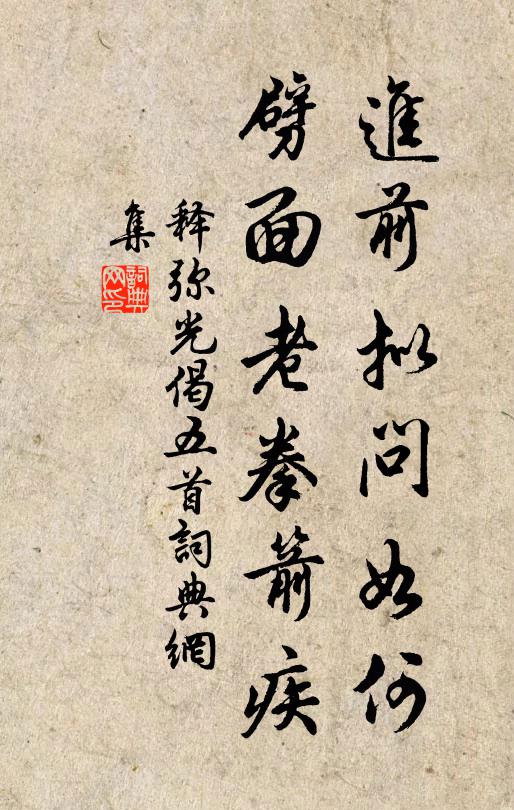 進前拟问如何
劈面老拳箭疾
释弥光偈五首詞典網
集
詞典
网印